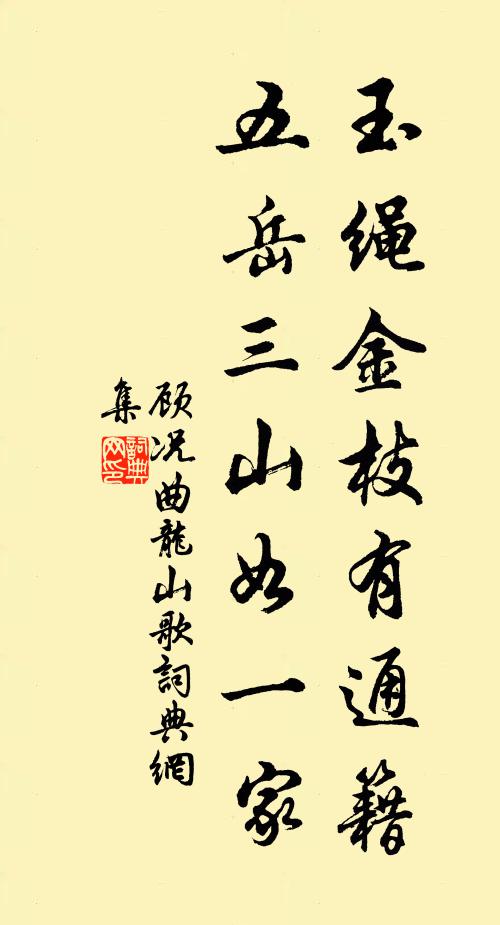 玉绳金枝有通籍
五岳三山如一家
顾况曲龍山歌詞典網
集
詞典網印